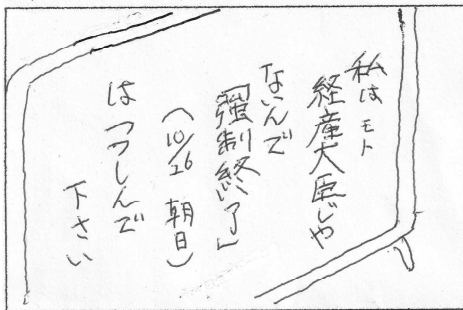 私はモト
経産大臣じゃ
ないんで
「強制終了」
(10/26 朝日)
はつつしんで
下さい